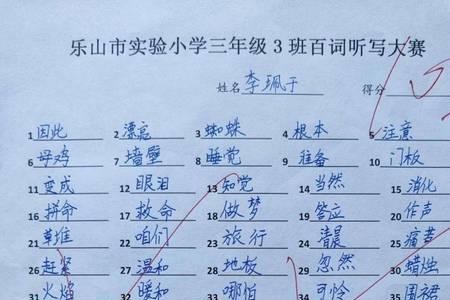 乐山市实验小学三年级3班百词听写大赛
姓名 李珮于 得分
1 因此 2 漂亮 3 蜘蛛 4 根本 5 注意
6 母鸡 7 墙壁 8 睡觉 9 准备 10 门板
11 变成 12 眼泪 13 知觉 14 当然 15 消化
16 拼命 17 救命 18 做梦 19 答应 20 作声
21 草堆 22 咱们 23 旅行 24 清晨 25 痛苦
26 赶紧 27 温和 28 地板 29 忽然 30 蜡烛
31 火焰 32 暖和 33 哪怕 34 可怜 35 围裙